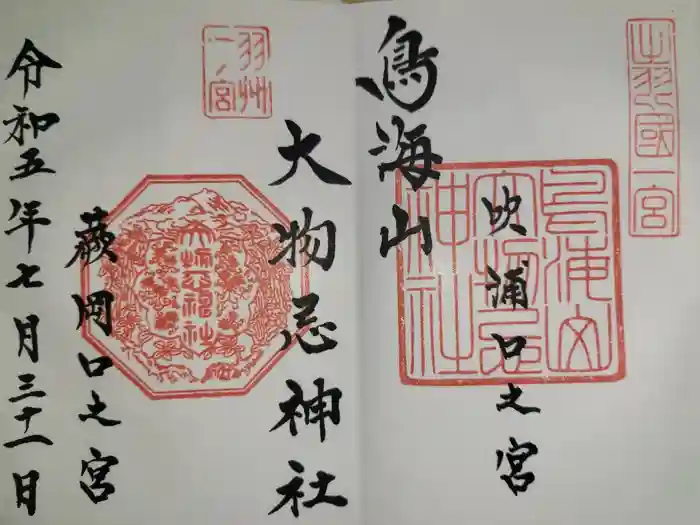 出羽國一宮
鳥海山
鳥海山
大物忌
神社
吹浦口之宮
羽州
一ノ宮
大物忌神社
大物忌神社
蕨岡口之宮
令和五年七月三十一日